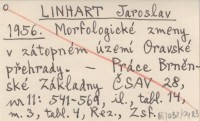 LINHART Jaroslav
1956. Morfologické změny
v zátopném území Oravské
přehrady. — Práce Brněn-
ské Základny ČSAV 28,
nr 11: 541-569, il., tabl. 14,
m. 3, tabl. 4, Rez., Zsf.